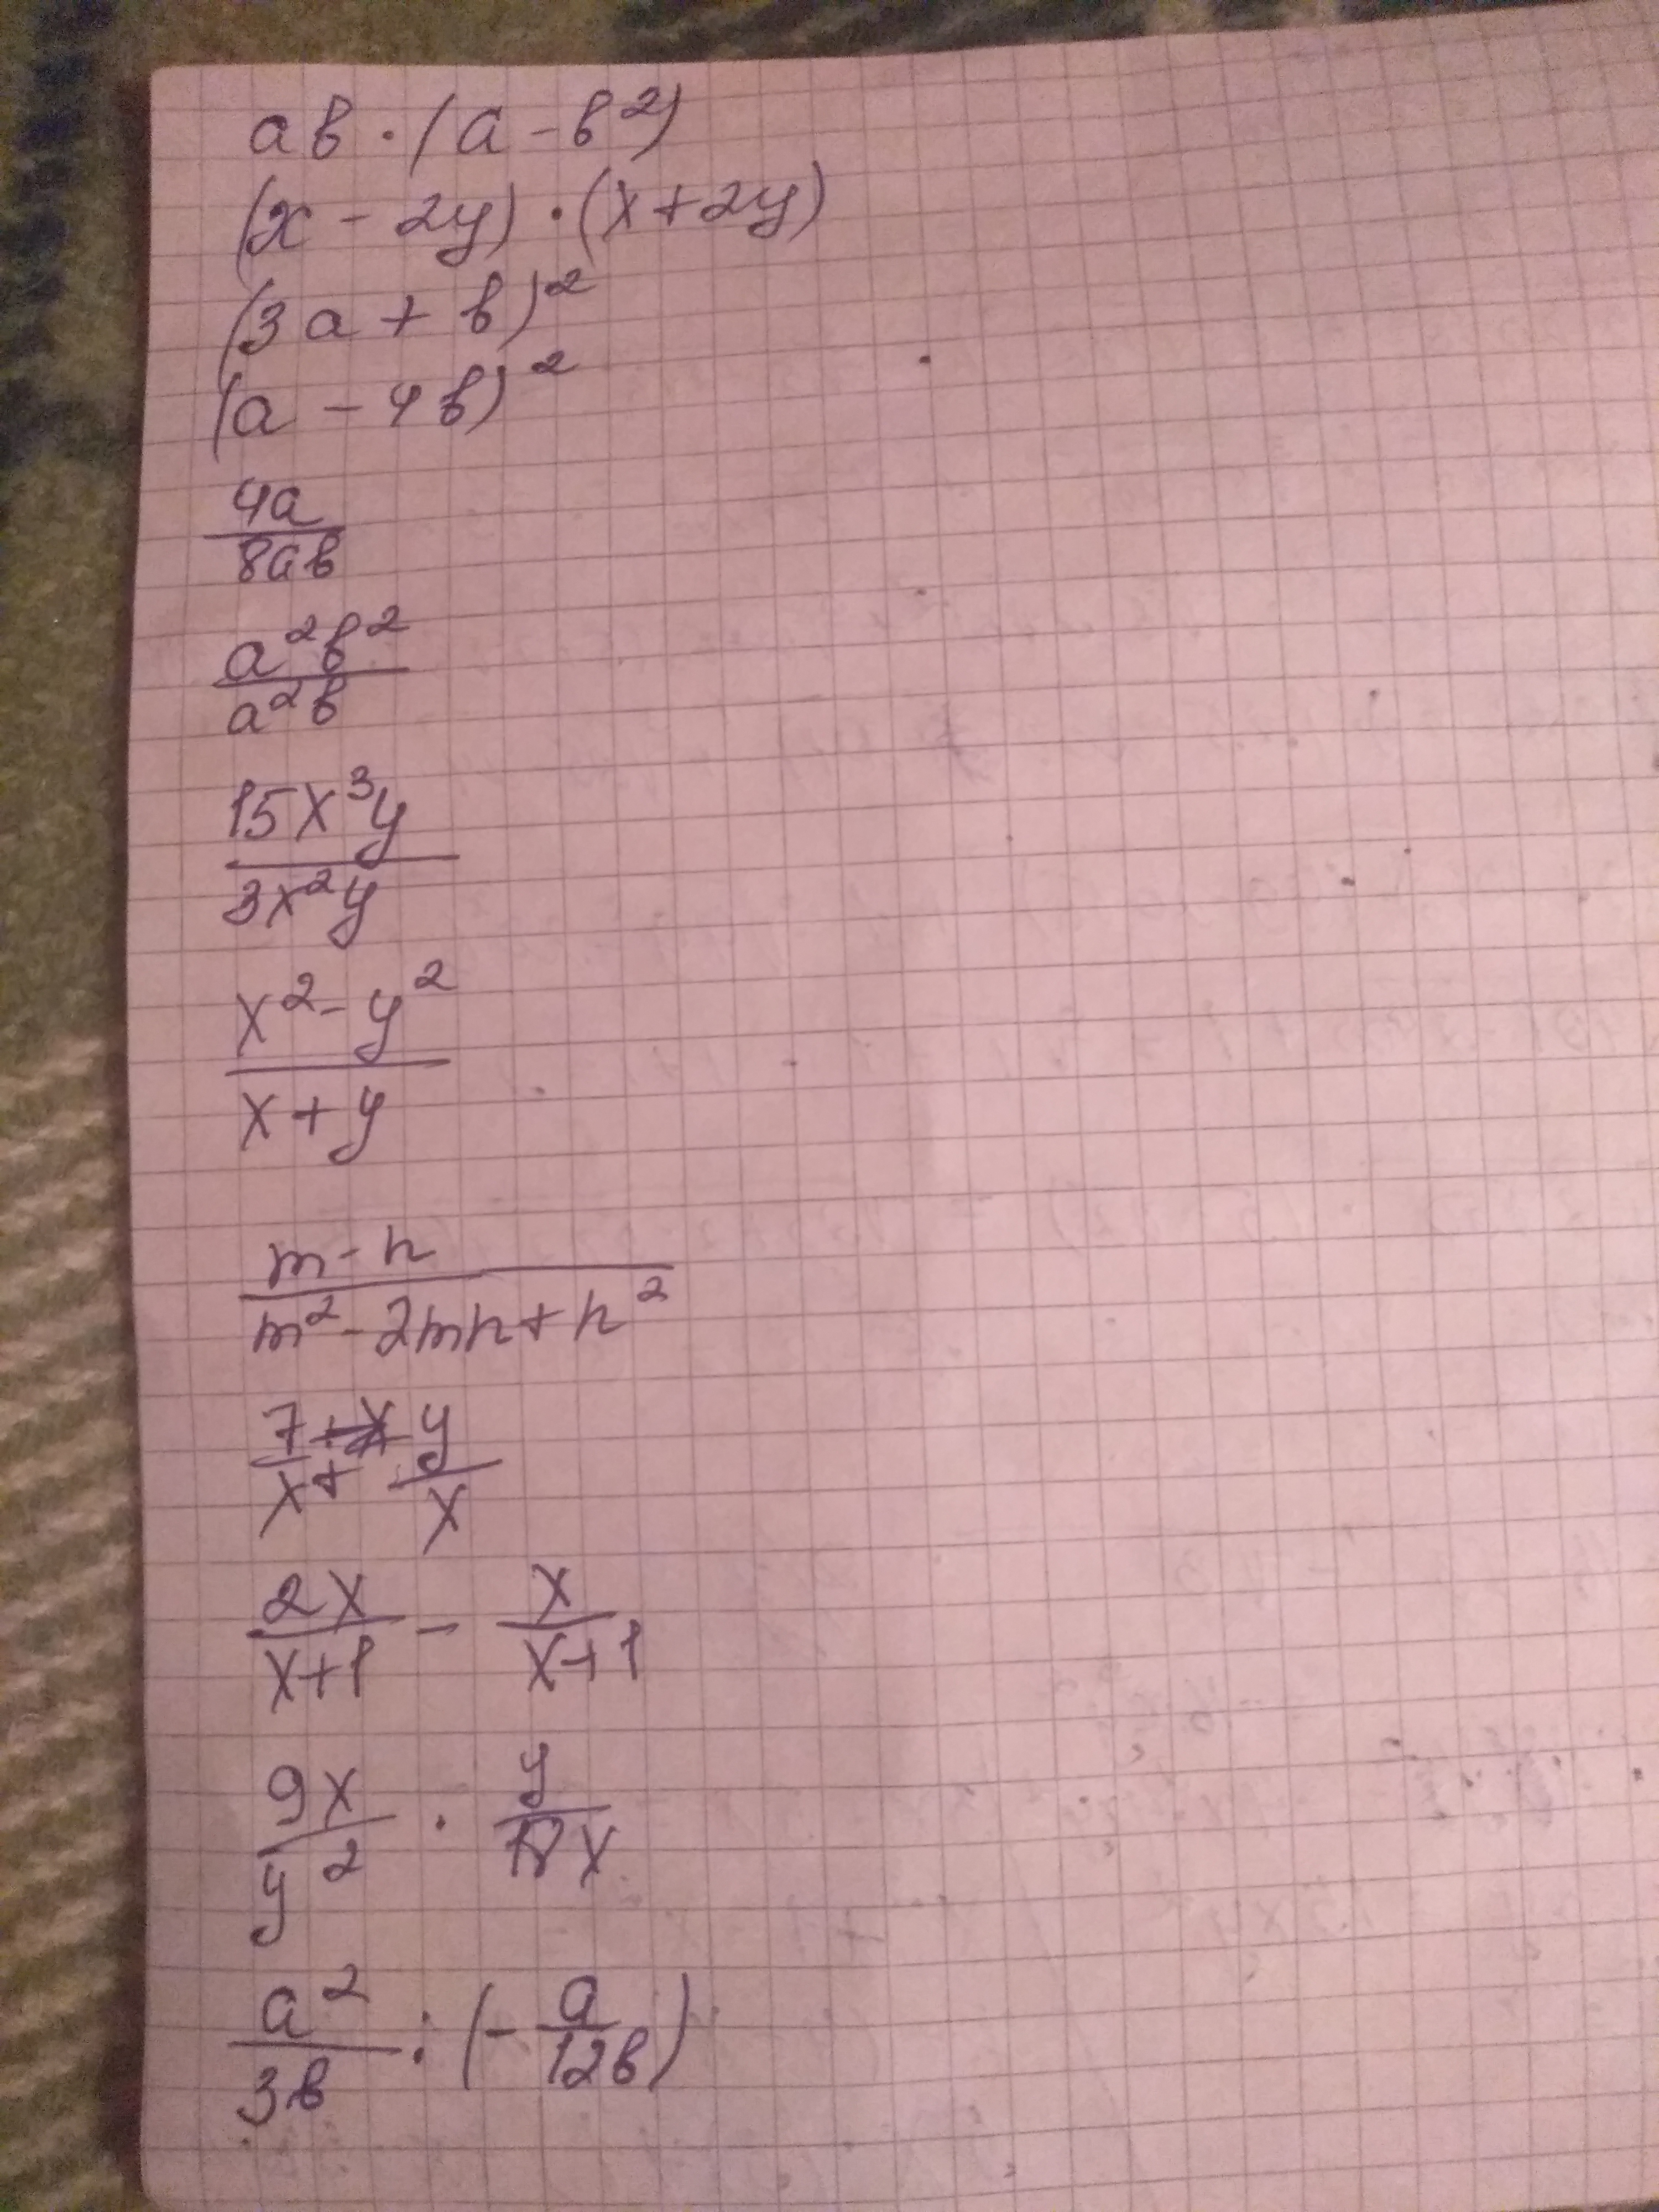 ab · (a - b²)
(x - 2y) · (x + 2y)
(3a + b)²
(a - 4b)²
4a
8ab
a²b²
a²b
15x³y
3x²y
x² - y²
x + y
m - n
m² - 2mn + n²
7/x + y/x
2x/x+1 - x/x+1
9x/y² · y/18x
a²/3b : (- a/12b)